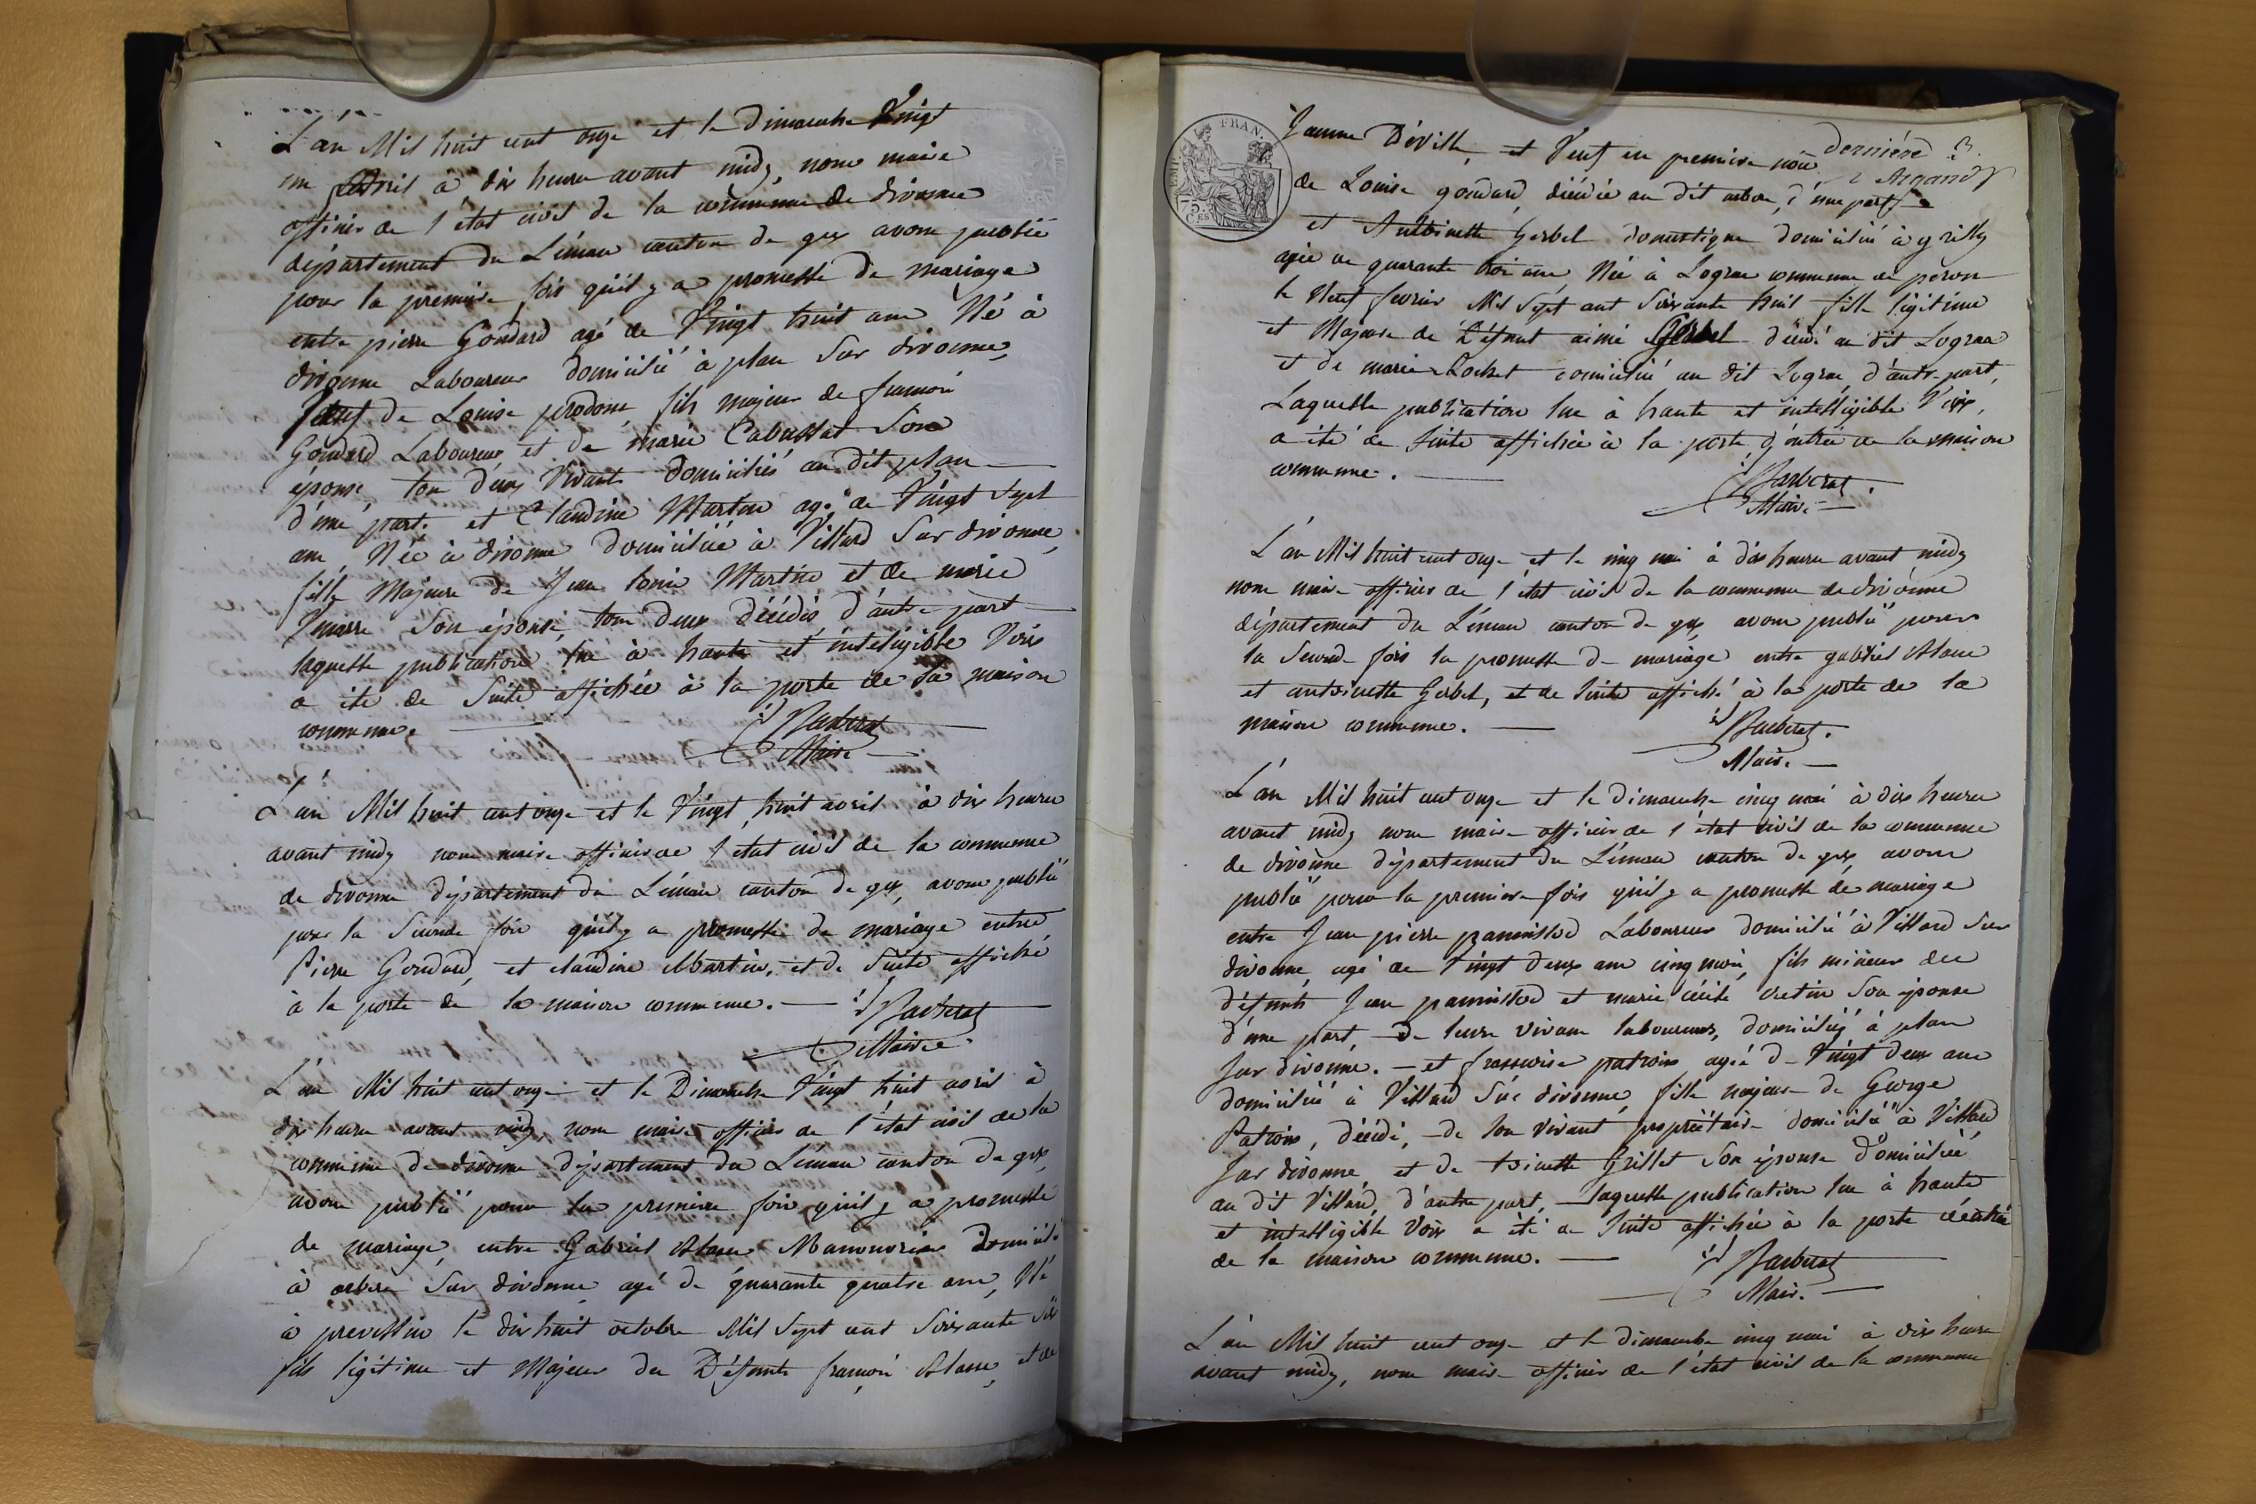 L'an Mil huit cent onze et le dimanche Vingt
un avril à dix heure avant midy, nous maire
officier de l'état civil de la commune de divonne
département du Léman canton de gex avons publié
pour la première fois qu'il y a promesse de mariage
entre pierre Goudard agé de Vingt huit ans Né à
divonne Laboureur domicilié à plan Sur divonne,
Veuf de Louise prodon, fils majeur de françois
Goudard Laboureur et de marie Cabussat Son
épouse, tous deux Vivants domiciliés au dit plan
d'une part. et Claudine Martin agé de Vingt Sept
ans Née à divonne domiciliée à Villard Sur divonne,
fille Majeure de Jean Martin et de marie
Son épouse, tous deux décédés, d'autre part
laquelle publication lue à haute et inteligible Voix
a été de Suite affichée à la porte de la maison
commune.
Barberat
Maire
L'an Mil huit cent onze et le Vingt huit avril à dix heures
avant midy nous maire officier de l'état civil de la commune
de divonne département du Léman canton de gex, avons publié
pour la Seconde fois qu'il y a promesse de mariage entre
Pierre Goudard, et claudine Martin, et de Suite affiché
à la porte de la maison commune.
Barberat
Maire
L'an Mil huit cent onze et le Dimanche Vingt huit avril à
dix heures avant midy nous maire officier de l'état civil de la
commune de divonne département du Léman canton de gex,
avons publié pour la première fois qu'il y a promesse
de mariage, entre Gabriel Manouvrier domicilié
à arbere Sur divonne agé de quarante quatre ans, Né
à prevessin le dix huit octobre Mil Sept cent Soixante Six
fils légitime et Majeur du Défunt françois et de
Jeanne Déville, et Veuf en première nôce
dernière
de Louise goudard, décédée au dit arbere, d'une part
et Antoinette Gerbel domestique domiciliée à grilly
agée de quarante trois ans Née à Logras commune de peron
le Neuf fevrier Mil Sept cent Soixante huit fille légitime
et Majeure de Défunt aimé Gerbel décédé au dit Logras
et de marie Rochet domiciliée au dit Logras, d'autre part,
Laquelle publication lue à haute et intelligible Voix,
a été de Suite affichée à la porte d'entrée de la maison
commune.
Barberat
Maire
L'an Mil huit cent onze et le cinq mai à dix heures avant midy
nous maire officier de l'état civil de la commune de divonne
département du Léman canton de gex, avons publié pour
la Seconde fois la promesse de mariage entre gabriel
et antoinette Gerbel, et de Suite affiché à la porte de la
maison commune.
Barberat.
Maire
L'an Mil huit cent onze et le dimanche cinq mai à dix heures
avant midy nous maire officier de l'état civil de la commune
de divonne département du Léman canton de gex, avons
publié pour la première fois qu'il y a promesse de mariage
entre Jean pierre panissod Laboureur domicilié à Villard Sur
divonne, agé de Vingt deux ans cinq mois, fils mineur des
défunts Jean panissod et marie cécile cretin Son épouse
d'une part, de leurs vivans laboureurs, domiciliés à plan
Sur divonne. — et françoise patroix agée de Vingt deux ans
domiciliée à Villard Sur divonne, fille majeure de George
Patroix, décédé, de Son vivant propriétaire domicilié à Villard
Sur divonne et de toinette Grillet Son épouse domiciliée
au dit Villard, d'autre part, — laquelle publication lue à haute
et intelligible Voix a été de Suite affichée à la porte d'entrée
de la maison commune.
Barberat
Maire
L'an Mil huit cent onze et le dimanche cinq mai à dix heures
avant midy, nous maire officier de l'état civil de la commune